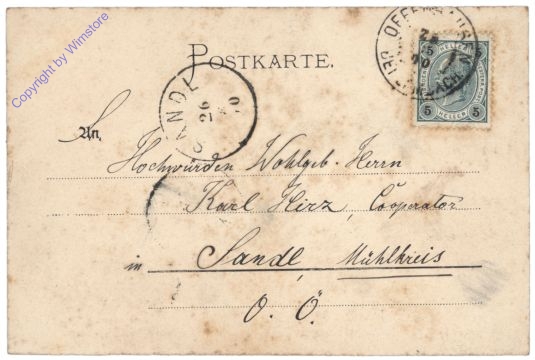 Copyright by Wimstore
POSTKARTE.
HELLER
5 HELLER 5
SANDL
26
An
Hochwürden Wohlgeb. Herrn
Karl Hirz, Cooperator
in Sandl, Mühlkreis
O. Ö.